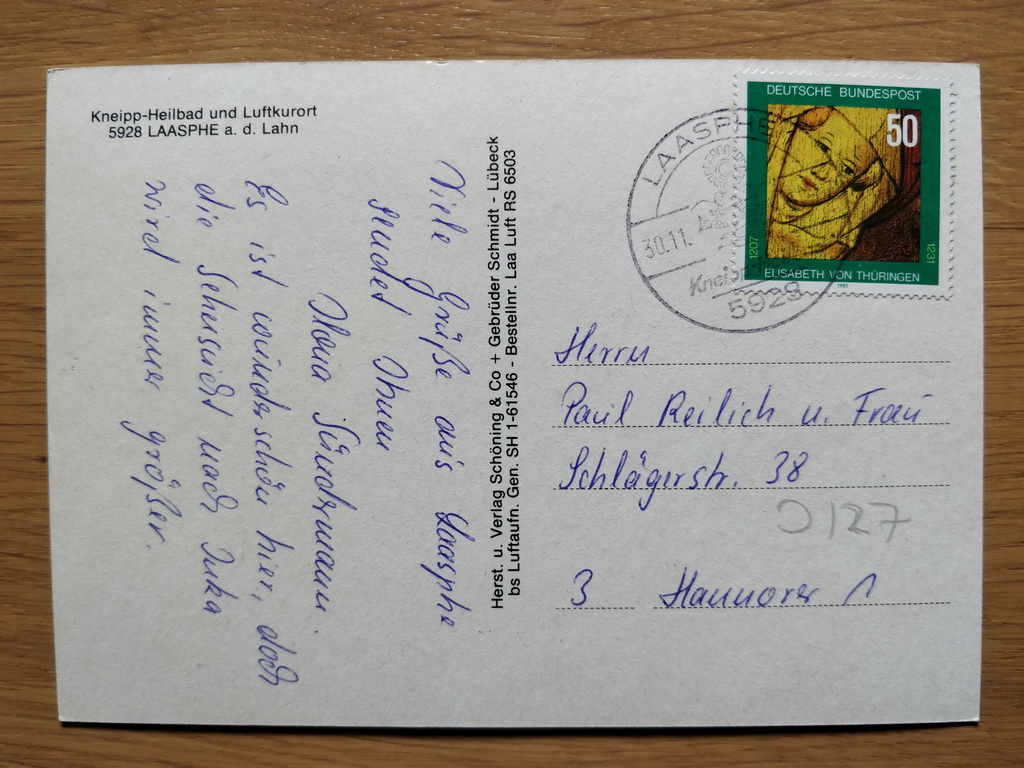 Kneipp-Heilbad und Luftkurort
5928 LAASPHE a. d. Lahn
Viele Grüße aus Laasphe
sendet Ihnen
Ilona
Es ist wunderschön hier, doch
die Sehnsucht nach
wird immer größer.
Herst. u. Verlag Schöning & Co + Gebrüder Schmidt - Lübeck
bs Luftaufn. Gen. SH 1-61546 - Bestellnr. Laa Luft RS 6503
LAASPHE
30.11.
5928
DEUTSCHE BUNDESPOST
50
1207
1231
ELISABETH VON THÜRINGEN
1981
Herrn
Paul Reilich u. Frau
Schlägerstr. 38
3 Hannover 1